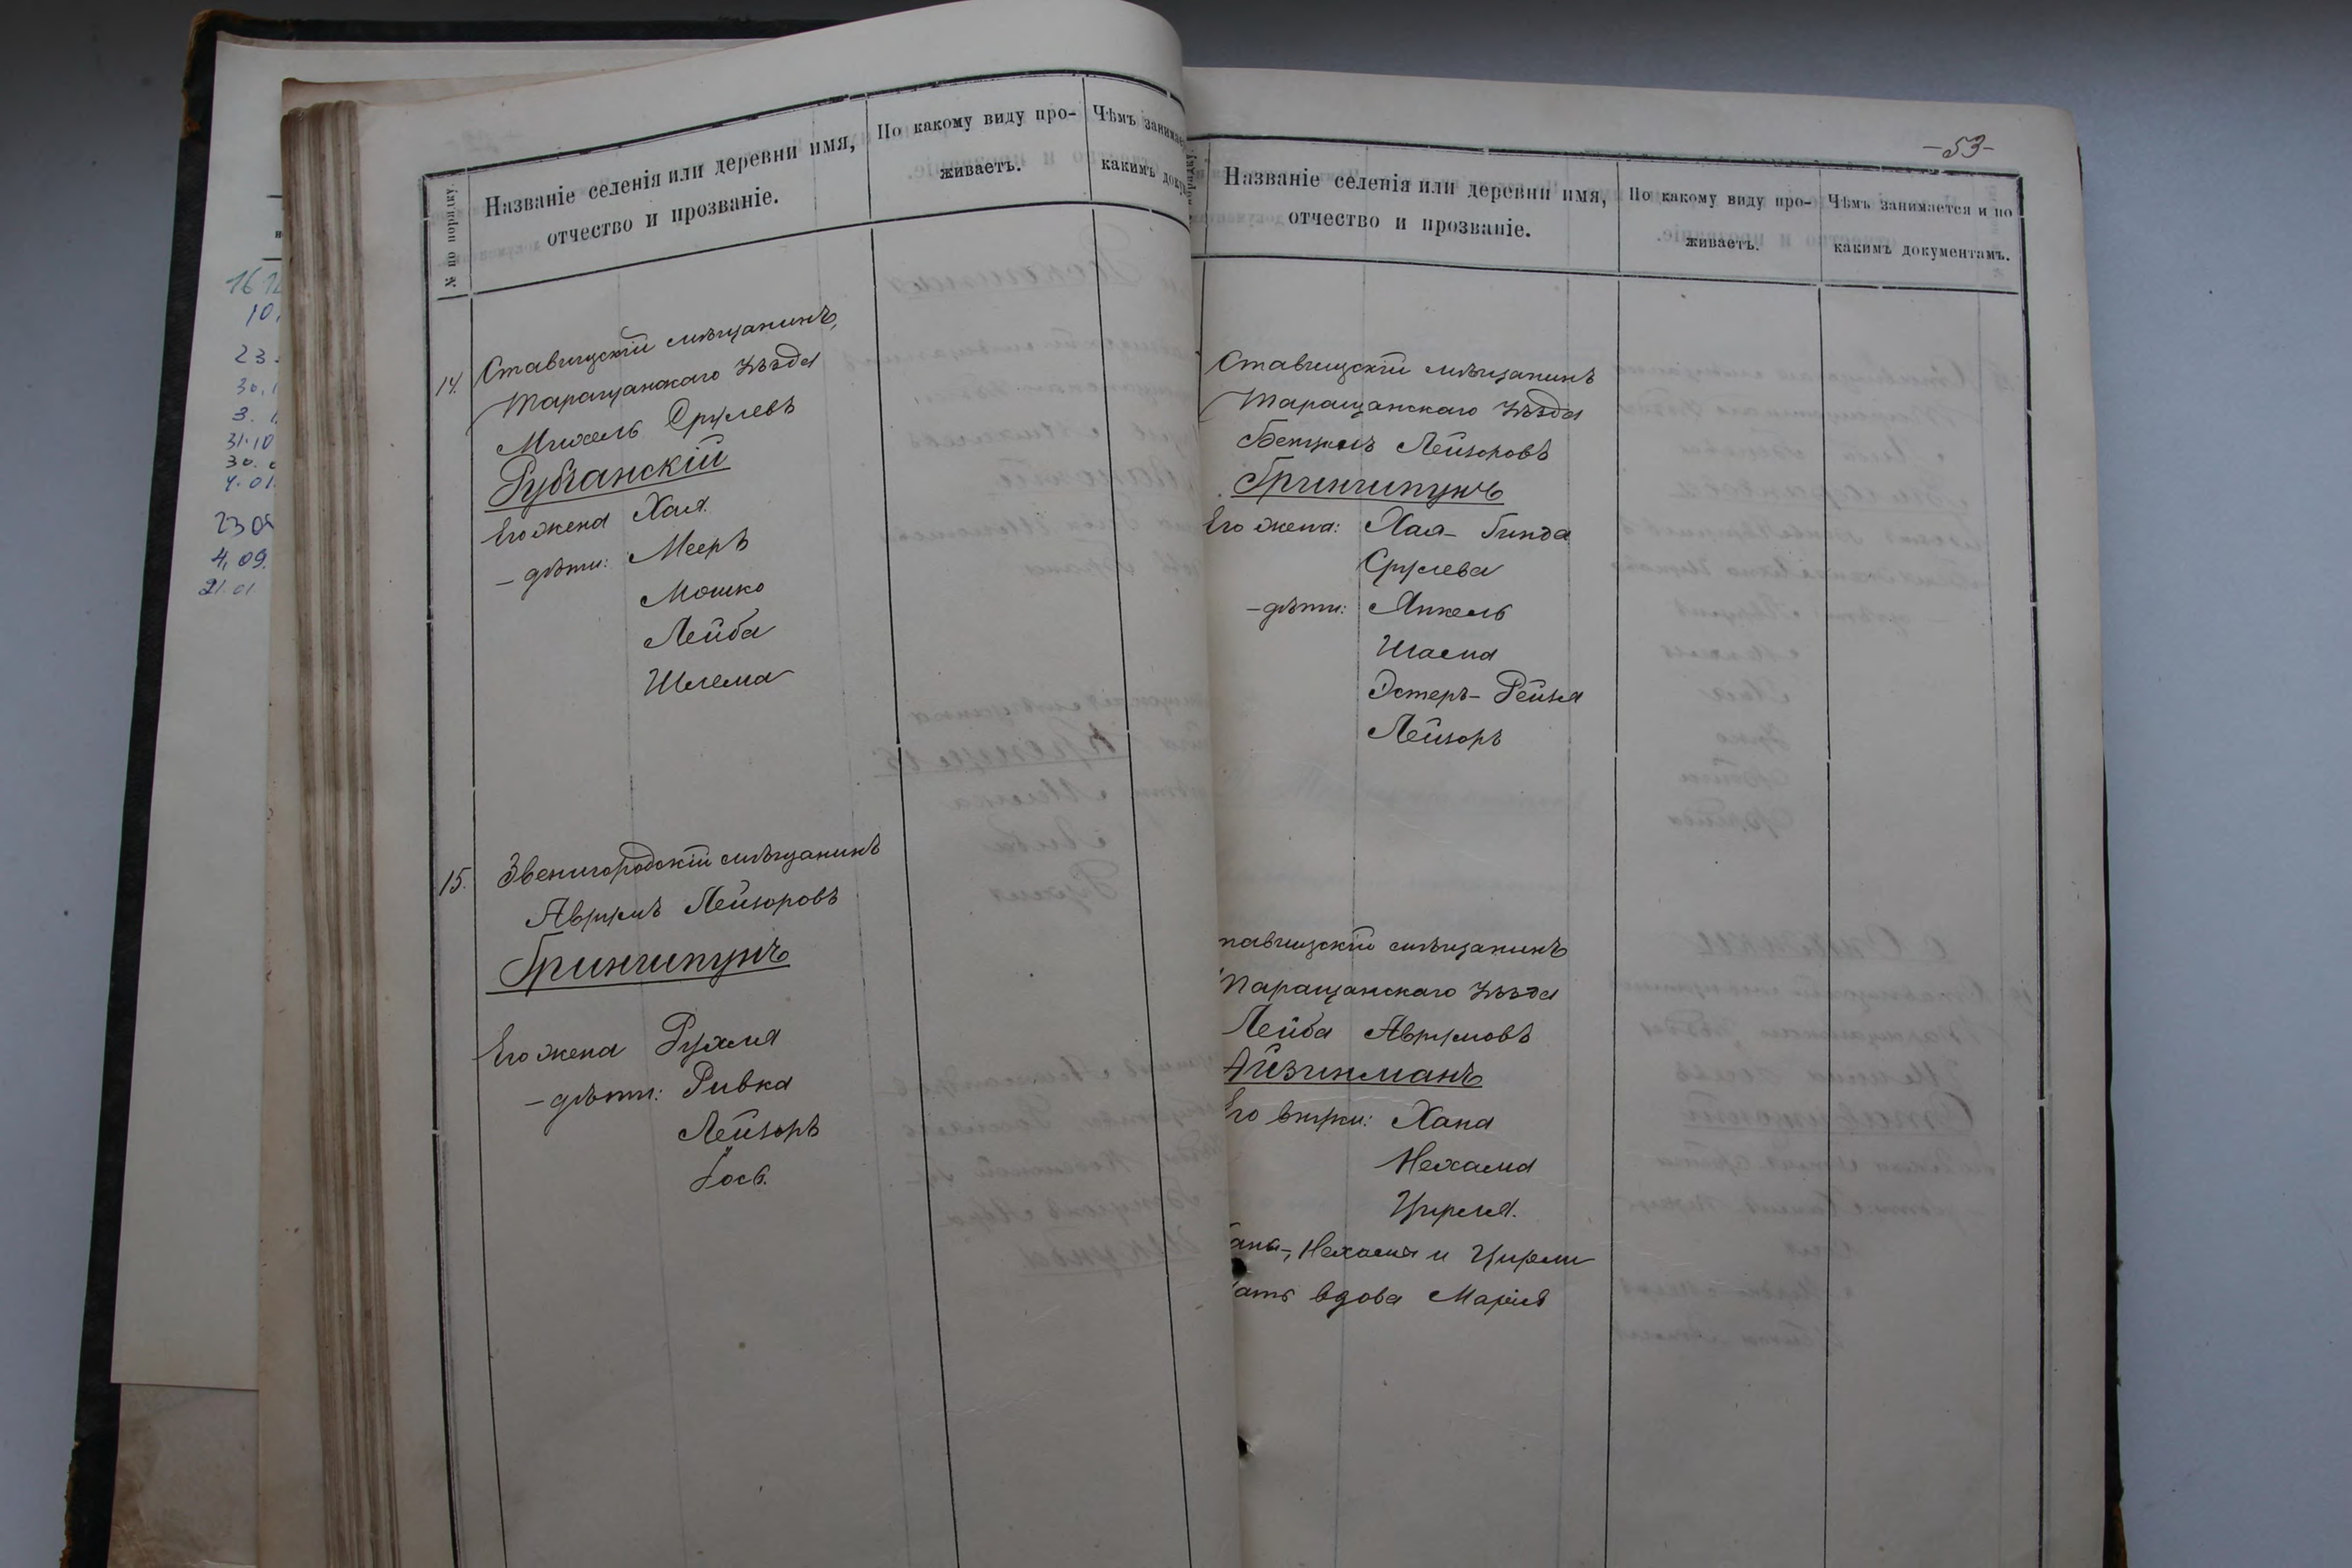 16
10.
23.
30.1
3.
31.10
30.
4.01
23 09
4.09.
21.01
№ по порядку.
Названіе селенія или деревни имя,
отчество и прозваніе.
По какому виду про-
живаетъ.
Чѣмъ занимае
какимъ доку
14.
Ставищскій мѣщанинъ,
Таращанскаго уѣзда
Михель Срулевъ
Рубчанскій
Его жена Хая.
— дѣти: Мееръ
Мошко
Лейба
Шлема
15.
Звенигородскій мѣщанинъ
Аврумъ Лейзоровъ
Гринципунъ
Его жена Рухля
— дѣти: Ривка
Лейзоръ
Іосъ.
— 53 —
порядку.
Названіе селенія или деревни имя,
отчество и прозваніе.
По какому виду про-
живаетъ.
Чѣмъ занимается и по
какимъ документамъ.
Ставищскій мѣщанинъ
Таращанскаго уѣзда
Бенціонъ Лейзоровъ
Гринципунъ
Его жена: Хая - Гинда
Срулева
— дѣти: Янкель
Шлема
Эстеръ - Рейзя
Лейзоръ
тавищскій мѣщанинъ
Таращанскаго уѣзда
Лейба Аврумовъ
Айзинманъ
Его внуки: Хана
Нехама
Цирля.
ана, Нехамы и Цирли
ать вдова Маріяс